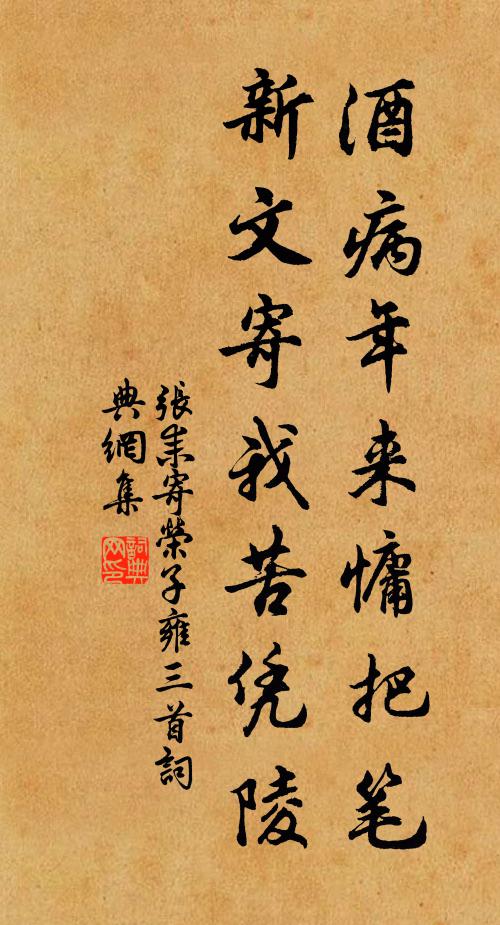 酒病年来慵把笔
新文寄我苦凭陵
張耒寄榮子雍三首詞
典網集
詞典网印